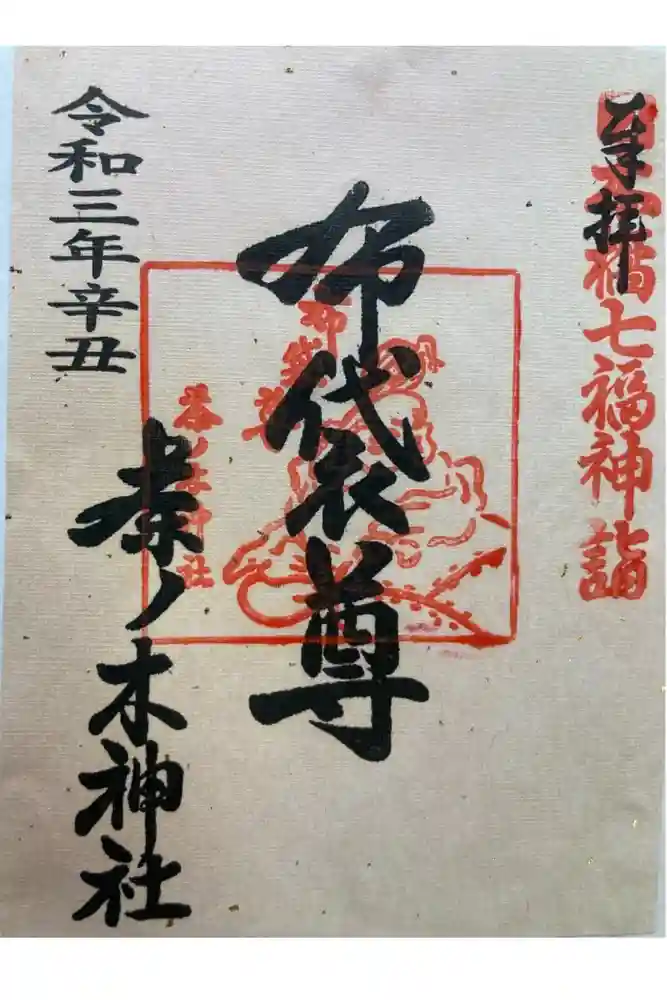 奉拝
日本橋七福神詣
布袋尊
布袋尊
茶ノ木神社
茶ノ木神社
令和三年辛丑